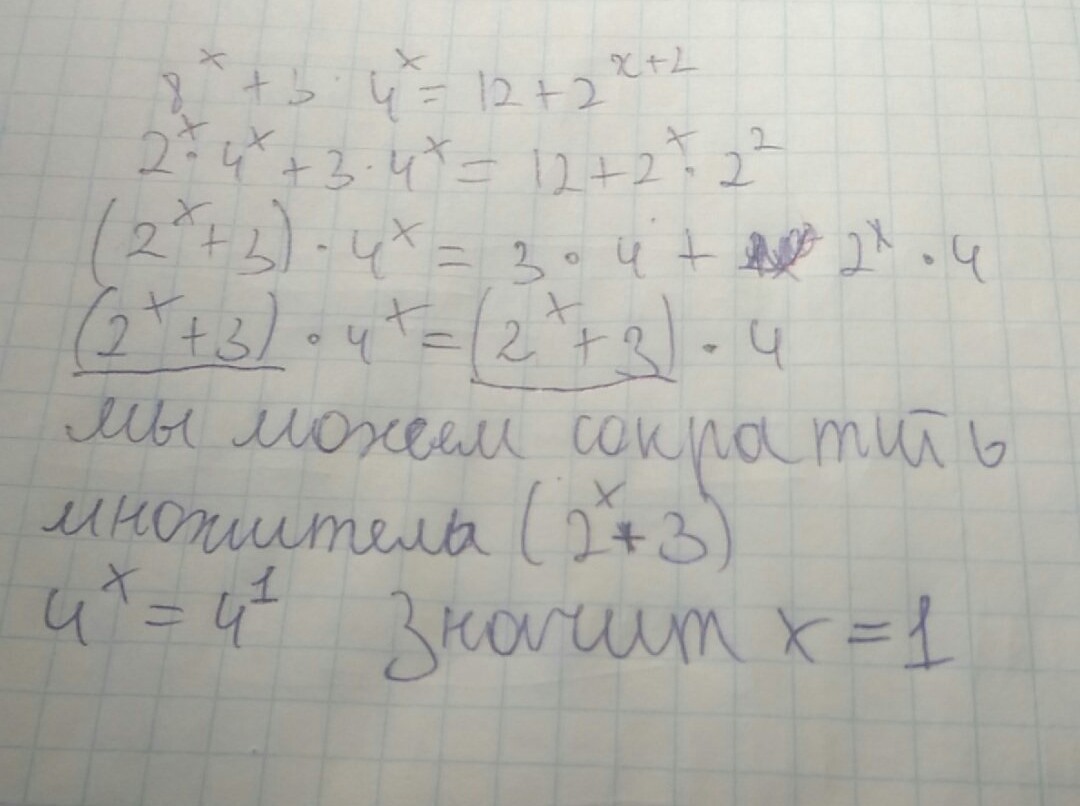 8^x + 3 · 4^x = 12 + 2^{x+2}
2^x · 4^x + 3 · 4^x = 12 + 2^x · 2^2
(2^x + 3) · 4^x = 3 · 4 + 2^x · 4
(2^x + 3) · 4^x = (2^x + 3) · 4
мы можем сократить
множитель (2^x + 3)
4^x = 4^1 Значит x = 1